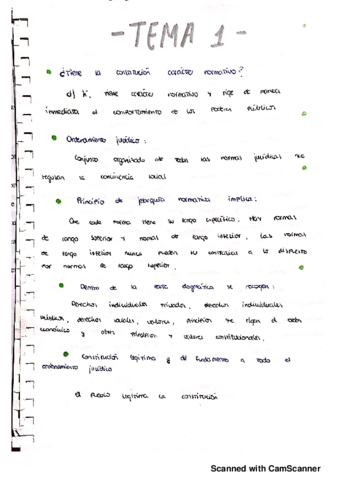 - TEMA 1 -
¿Tiene la constitución carácter normativo?
Sí, tiene carácter normativo y rige de manera
inmediata el comportamiento de los Poderes Públicos
Ordenamiento jurídico:
Conjunto organizado de todas las normas jurídicas que
regulan la convivencia social
Principio de jerarquía normativa implica:
Que cada norma tiene su rango específico. Hay normas
de rango superior y normas de rango inferior. Las normas
de rango inferior nunca pueden ir contrarias a lo dispuesto
por normas de rango superior.
Dentro de la parte dogmática se recogen:
Derechos individuales privados, derechos individuales
públicos, derechos sociales, valores, principios que rigen el orden
económico y otros principios y valores constitucionales.
Constitución legitima y da fundamento a todo el
ordenamiento jurídico
El Pueblo legitima la constitución
Scanned with CamScanner